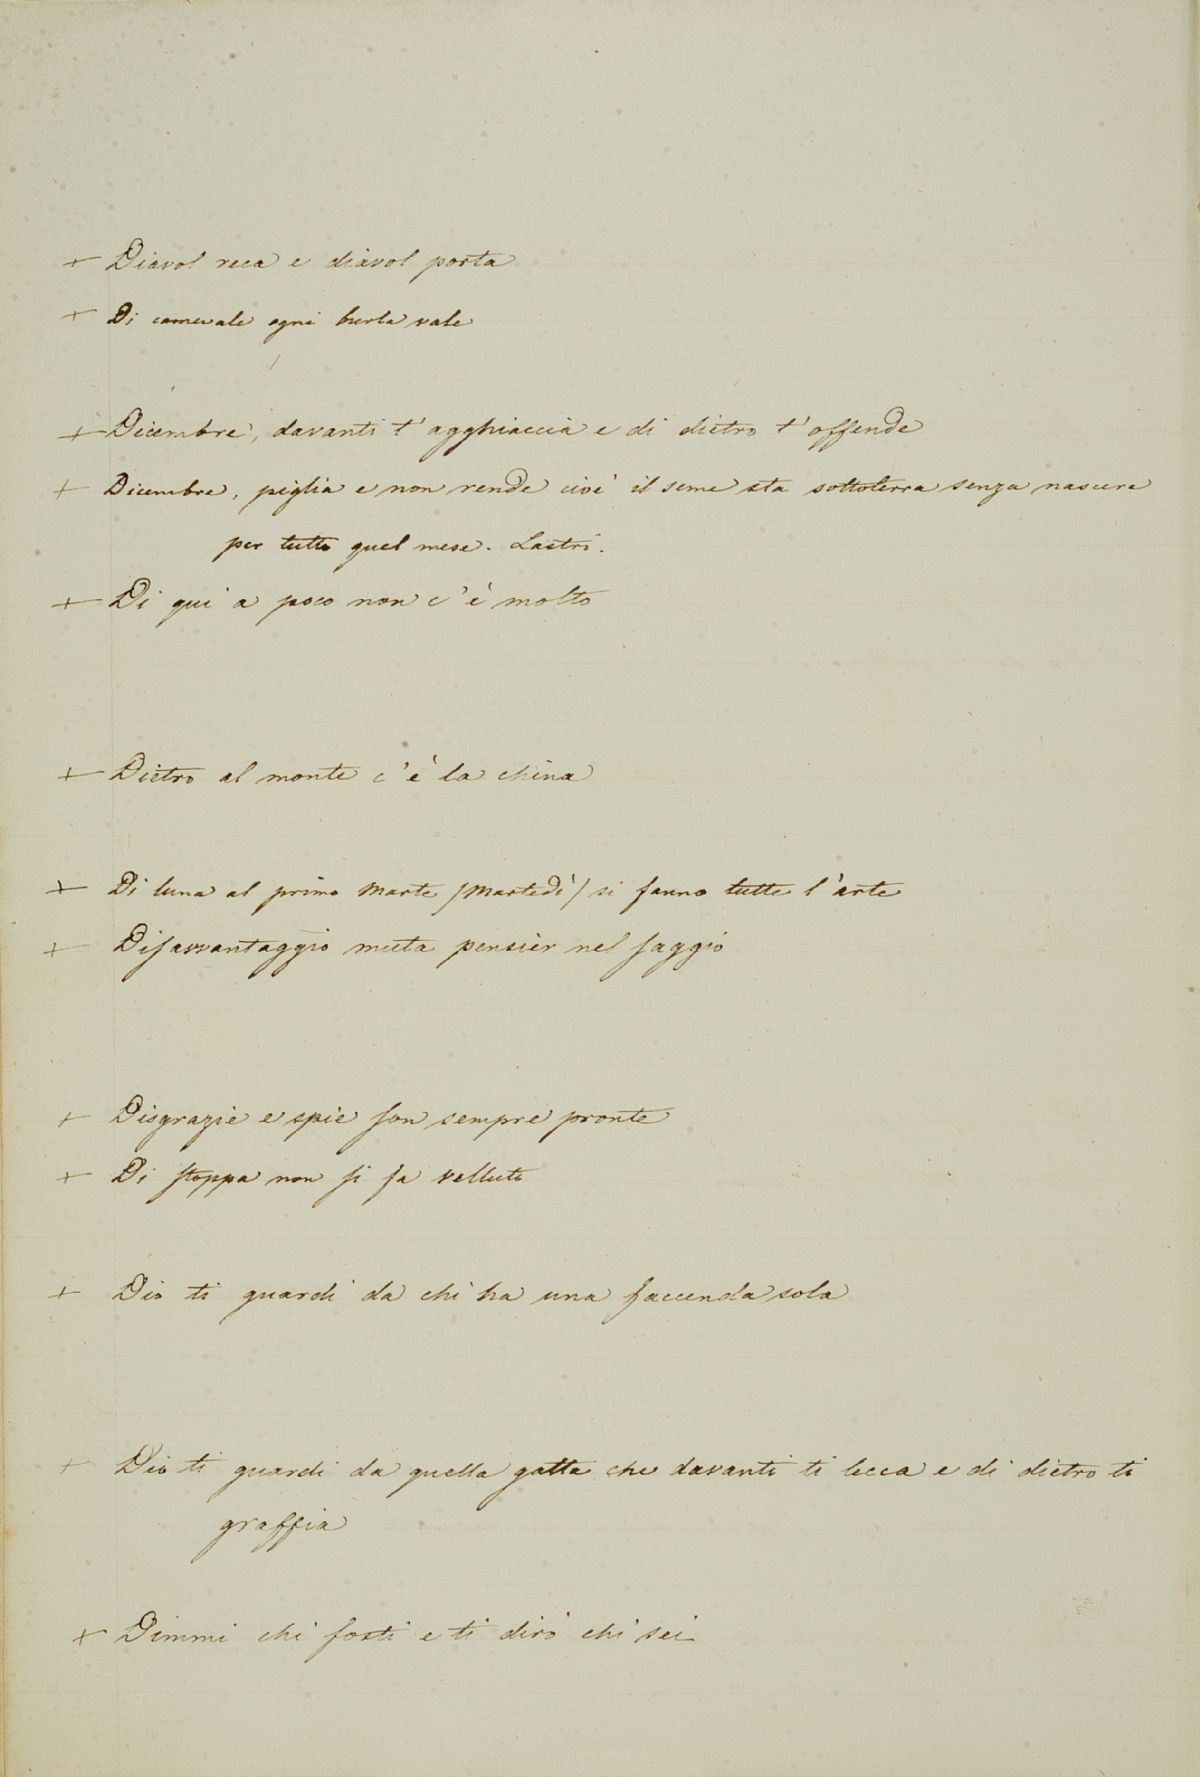 + Diavol reca e diavol porta
+ Di carnevale ogni burla vale
+ Dicembre, davanti t'agghiaccia e di dietro t'offende
+ Dicembre, piglia e non rende cioè il seme sta sottoterra senza nascere
per tutto quel mese. Lastri.
+ Di qui a poco non c'è molto
+ Dietro al monte c'è la china
+ Di luna al primo Marte /Martedì/ si fanno tutte l'arte
+ Disavvantaggio muta pensier nel saggio
+ Disgrazie e spie son sempre pronte
+ Di stoppa non si fa velluti
+ Dio ti guardi da chi ha una faccenda sola
+ Dio ti guardi da quella gatta che davanti ti lecca e di dietro ti
graffia
+ Dimmi chi fosti e ti dirò chi sei